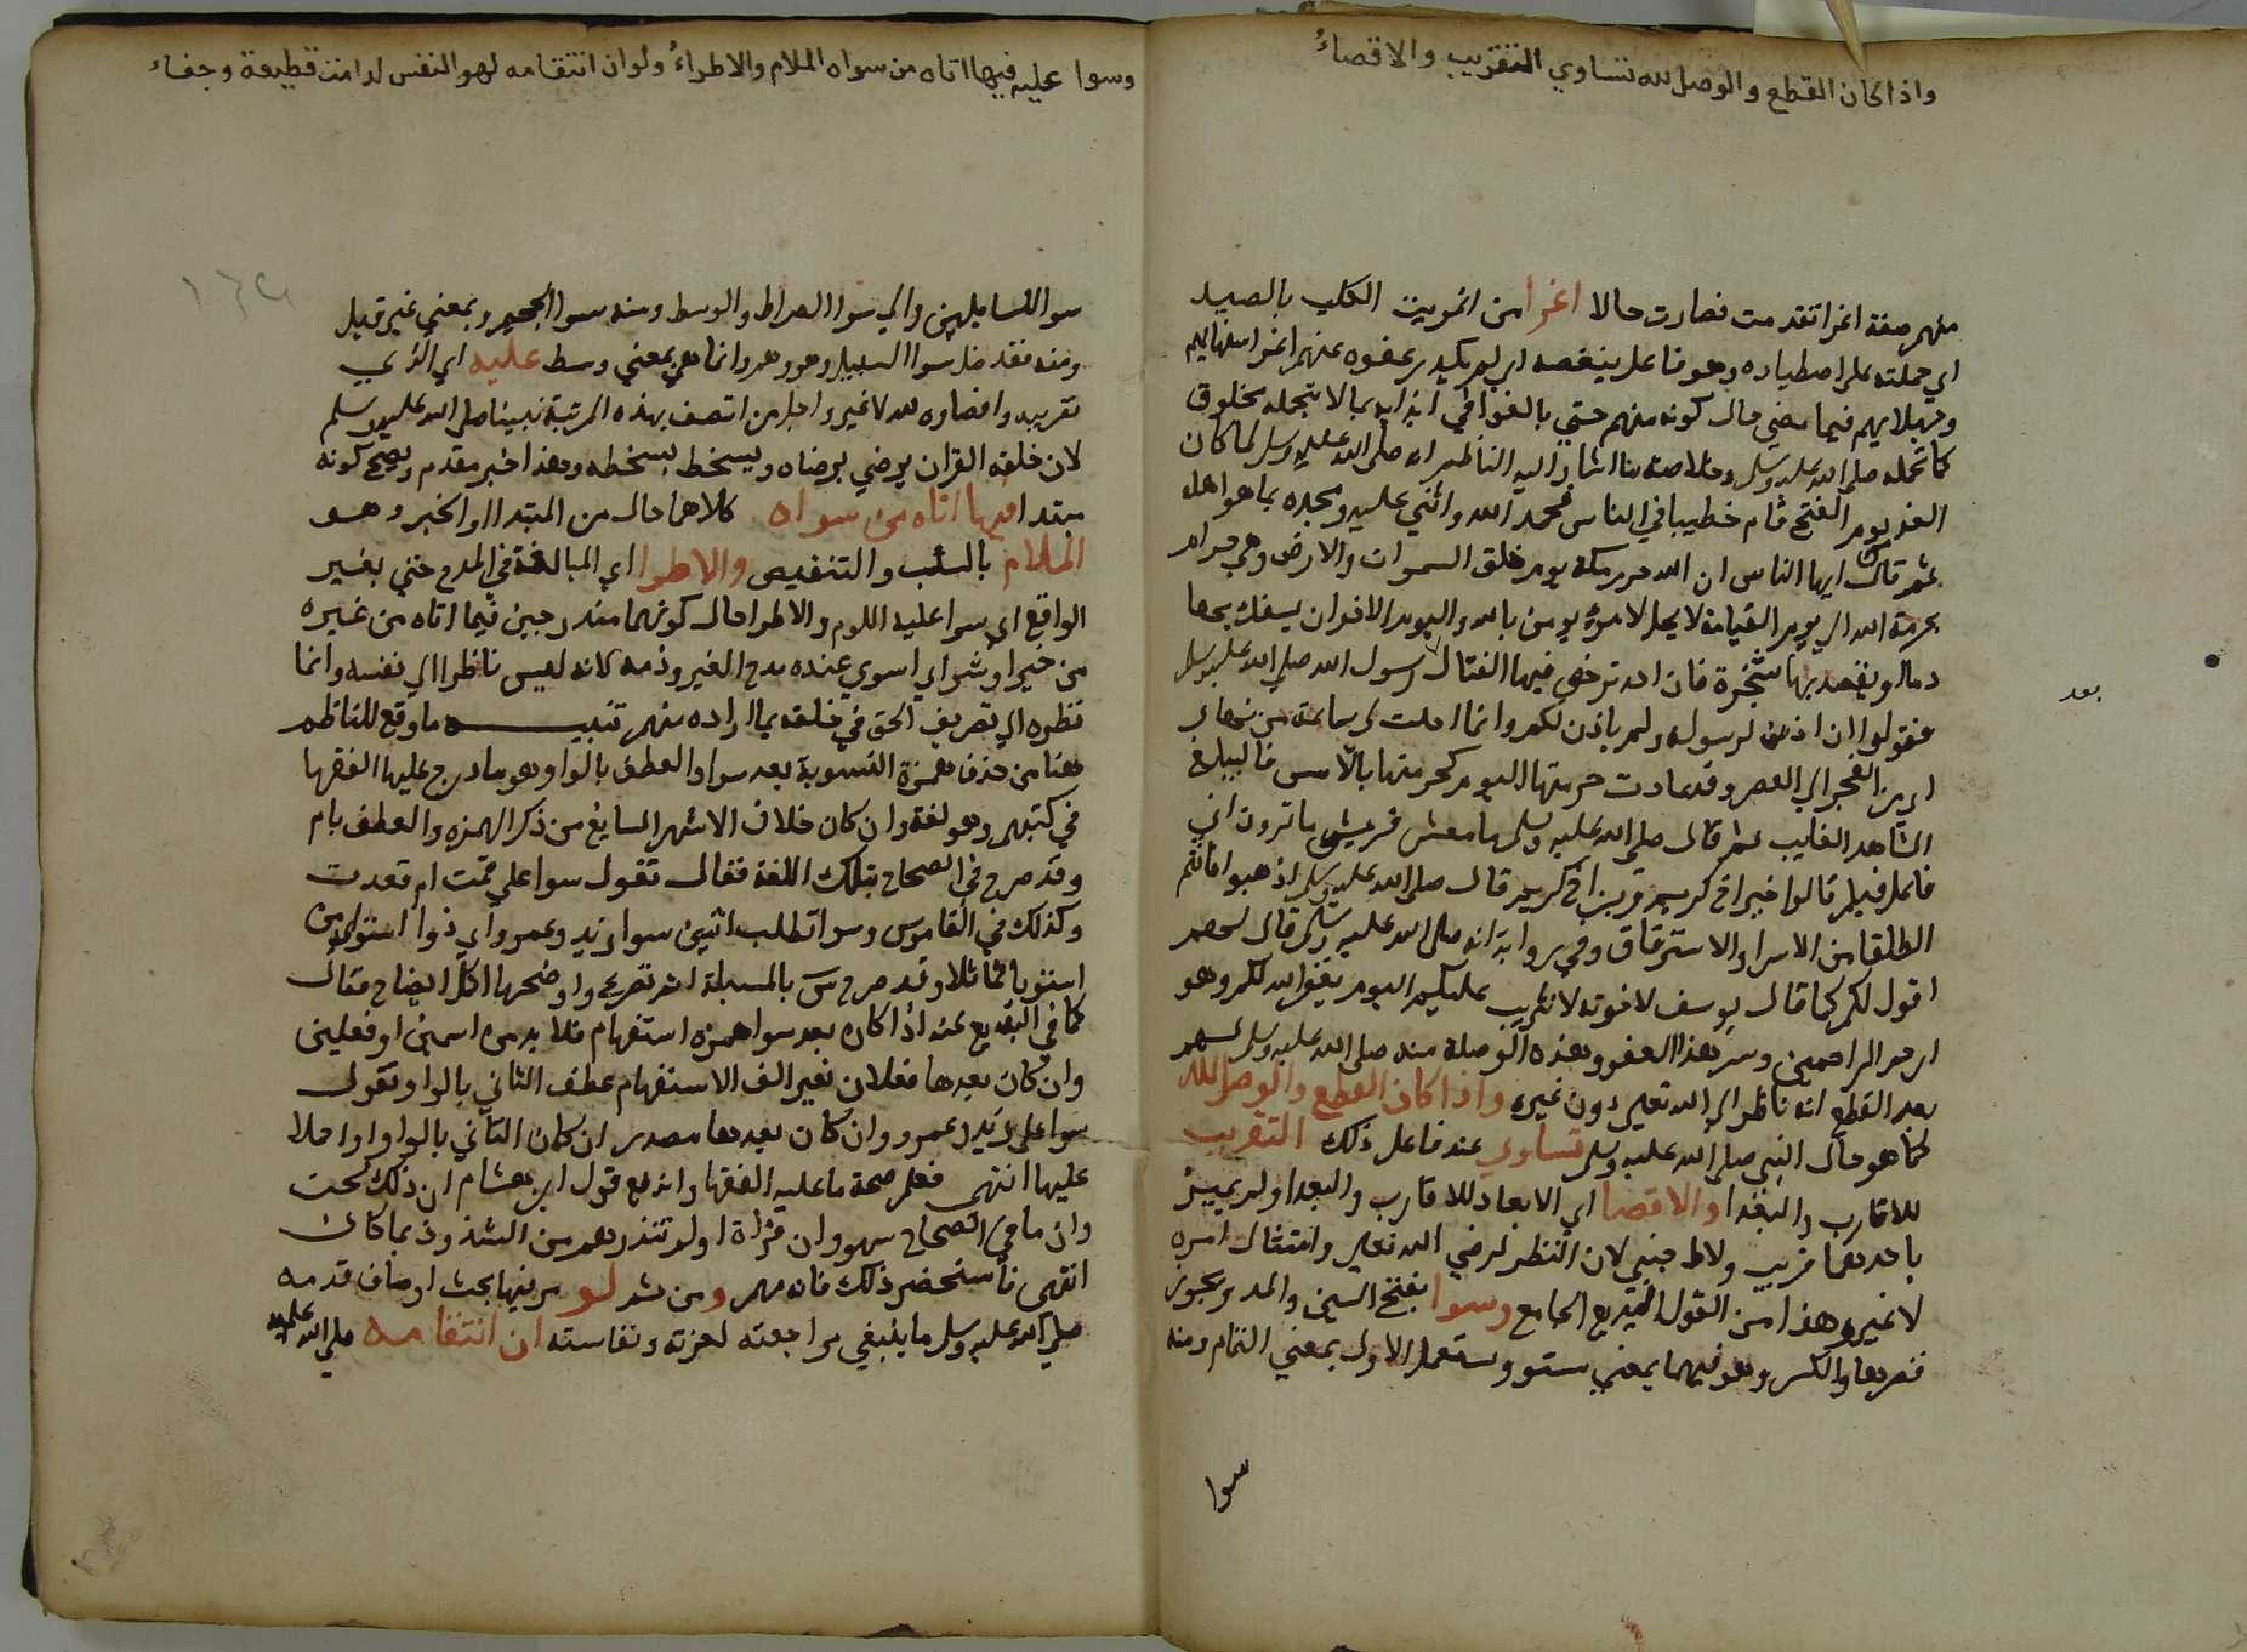 واذا كان القطع والوصل لله تساوي التقريب والاقصاءُ
منهم صفة اغرا تقدمت فصارت حالا اغرا من اغريت الكلب بالصيد
اي حملته على اصطياده وهو فاعل ينغصه اي لم يكدر عفوه عنهم اغرا سفهايهم
وجهلايهم فيما مضي حال كونه منهم حتي بالغوا في ايذايه بما لا يتحمله مخلوق
كما تحمله صلى الله عليه وسلم وخلاصة ما اشار اليه الناظم انه صلى الله عليه وسلم لما كان
الغد يوم الفتح قام خطيبا في الناس فحمد الله واثني عليه ومجده بما هو اهله
ثم قال ايها الناس ان الله حرم مكة يوم خلق السموات والارض وهي حرام
بحرمة الله الي يوم القيامة لا يحل لامرء يومن بالله واليوم الاخر ان يسفك بها
دما او يعضد بها شجرة فان احد ترخص فيها لقتال رسول الله صلى الله عليه وسلم
بعد
فقولوا ان اذن لرسوله ولم ياذن لكم وانما احلت لي ساعة من نهار
اي من الفجر الي العصر وقد عادت حرمتها اليوم كحرمتها بالامس فاليبلغ
الشاهد الغايب ثم قال صلى الله عليه وسلم يا معشر قريش ما ترون اني
فاعل فيكم قالوا خيرا اخ كريم وابن اخ كريم قال صلى الله عليه وسلم اذهبوا فانتم
الطلقا من الاسر والاسترقاق وفي رواية انه صلى الله عليه وسلم قال لهم
اقول لكم كما قال يوسف لاخوته لا تثريب عليكم اليوم يغفر الله لكم وهو
ارحم الراحمين وسر هذا العفو وهذه الوصلة منه صلى الله عليه وسلم لهم
بعد القطع انه ناظر الي الله تعالي دون غيره واذا كان القطع والوصل لله
كما هو حال النبي صلى الله عليه وسلم تساوي عند فاعل ذلك التقريب
للاقارب والبعدا والاقصا اي الابعاد للاقارب والبعدا ولم يميز
باحدهما قريب ولا اجنبي لان النظر لرضي الله تعالي وامتثال امره
لا غير وهذا من القول البديع الجامع وسوا بفتح السين والمد ويجوز
قصرها والكسر وهو فيهما بمعني مستو ويستعمل الاول بمعني التمام ومنه
سوا
وسوا عليه فيها اتاه من سواه الملام والاطراءُ ولو ان انتقامه لهوي النفس لدامت قطيعة وجفاء
سوا للسايلين والي سوا الصراط والوسط ومنه سوا الجحيم وبمعني غير قيل
ومنه فقد ضل سوا السبيل وهو وهم وانما هي بمعني وسط عليه اي الذي
تقريبه واقصاوه لله لا غير واجل من اتصف بهذه المرتبة نبينا صلى الله عليه وسلم
لان خلقه القران يرضي برضاه ويسخط بسخطه وهذا خبر مقدم ويصح كونه
مبتدا فيها اتاه من سواه كلاهما حال من المبتدا او الخبر وهو
الملام بالسب والتنقيص والاطرا اي المبالغة في المدح حتي بغير
الواقع اي سوا عليه اللوم والاطرا حال كونهما مندرجين فيما اتاه من غيره
من خير او شر اي استوي عنده مدح الغير وذمه لانه ليس ناظرا الي نفسه وانما
نظره الي تصريف الحق في خلقه بما اراده منهم تنبيه ما وقع للناظم
هنا من حذف همزة التسوية بعد سوا والعطف بالواو هو ما درج عليها الفقها
في كتبهم وهو لغة وان كان خلاف الاشهر السايغ من ذكر الهمزه والعطف بام
وقد صرح في الصحاح بتلك اللغة فقال تقول سوا علي قمت ام قعدت
وكذلك في القاموس وسوا تطلب اثنين سوا زيد وعمرو اي ذوا استوا من
استويا تماثلا وقد صرح س بالمسيلة اتم تصريح واوضحها اكمل ايضاح فقال
كما في البديع عنه اذا كان بعد سوا همزه استفهام فلا بد من اسمين او فعلين
وان كان بعدها فعلان بغير الف الاستفهام عطف الثاني بالواو تقول
سوا علي زيد وعمرو وان كان بعدها مصدر ان كان الثاني بالواو او احلا
عليها انتهى فعلم صحة ما عليه الفقها واندفع قول ابن هشام ان ذلك لحن
وان ما في الصحاح سهو وان قراة او لم تنذرهم من الشذوذ بمكان
انتهى فاستحضر ذلك فانه مهم ومن ثم لو مر فيها بحث اوصاف قدمه
صلى الله عليه وسلم ما ينبغي مراجعته لعزته ونفاسته ان انتقامه صلى الله عليه